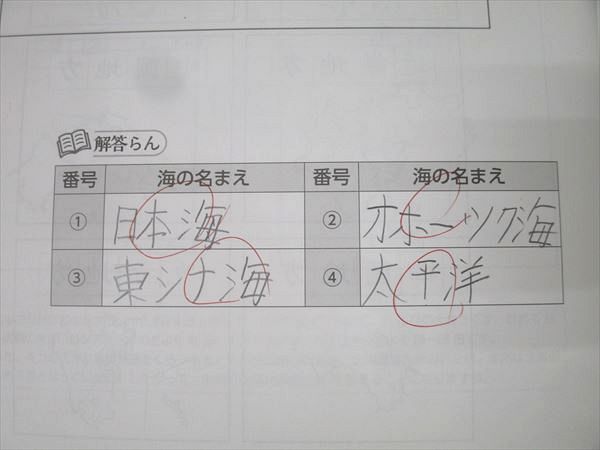 解答らん
番号 海の名まえ 番号 海の名まえ
① 日本海 ② オホーツク海
③ 東シナ海 ④ 太平洋